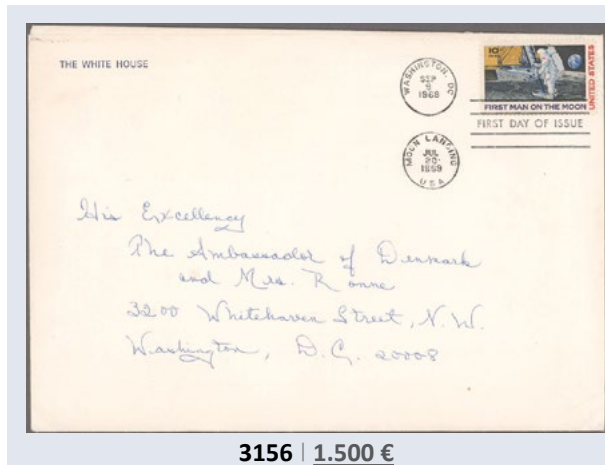 THE WHITE HOUSE
WASHINGTON, DC
SEP
9
1969
10¢
UNITED STATES
FIRST MAN ON THE MOON
FIRST DAY OF ISSUE
MOON LANDING
JUL
20
1969
USA
His Excellency
The Ambassador of Denmark
and Mrs. Ronne
3200 Whitehaven Street, N.W.
Washington, D.C. 20008
3156 | 1.500 €